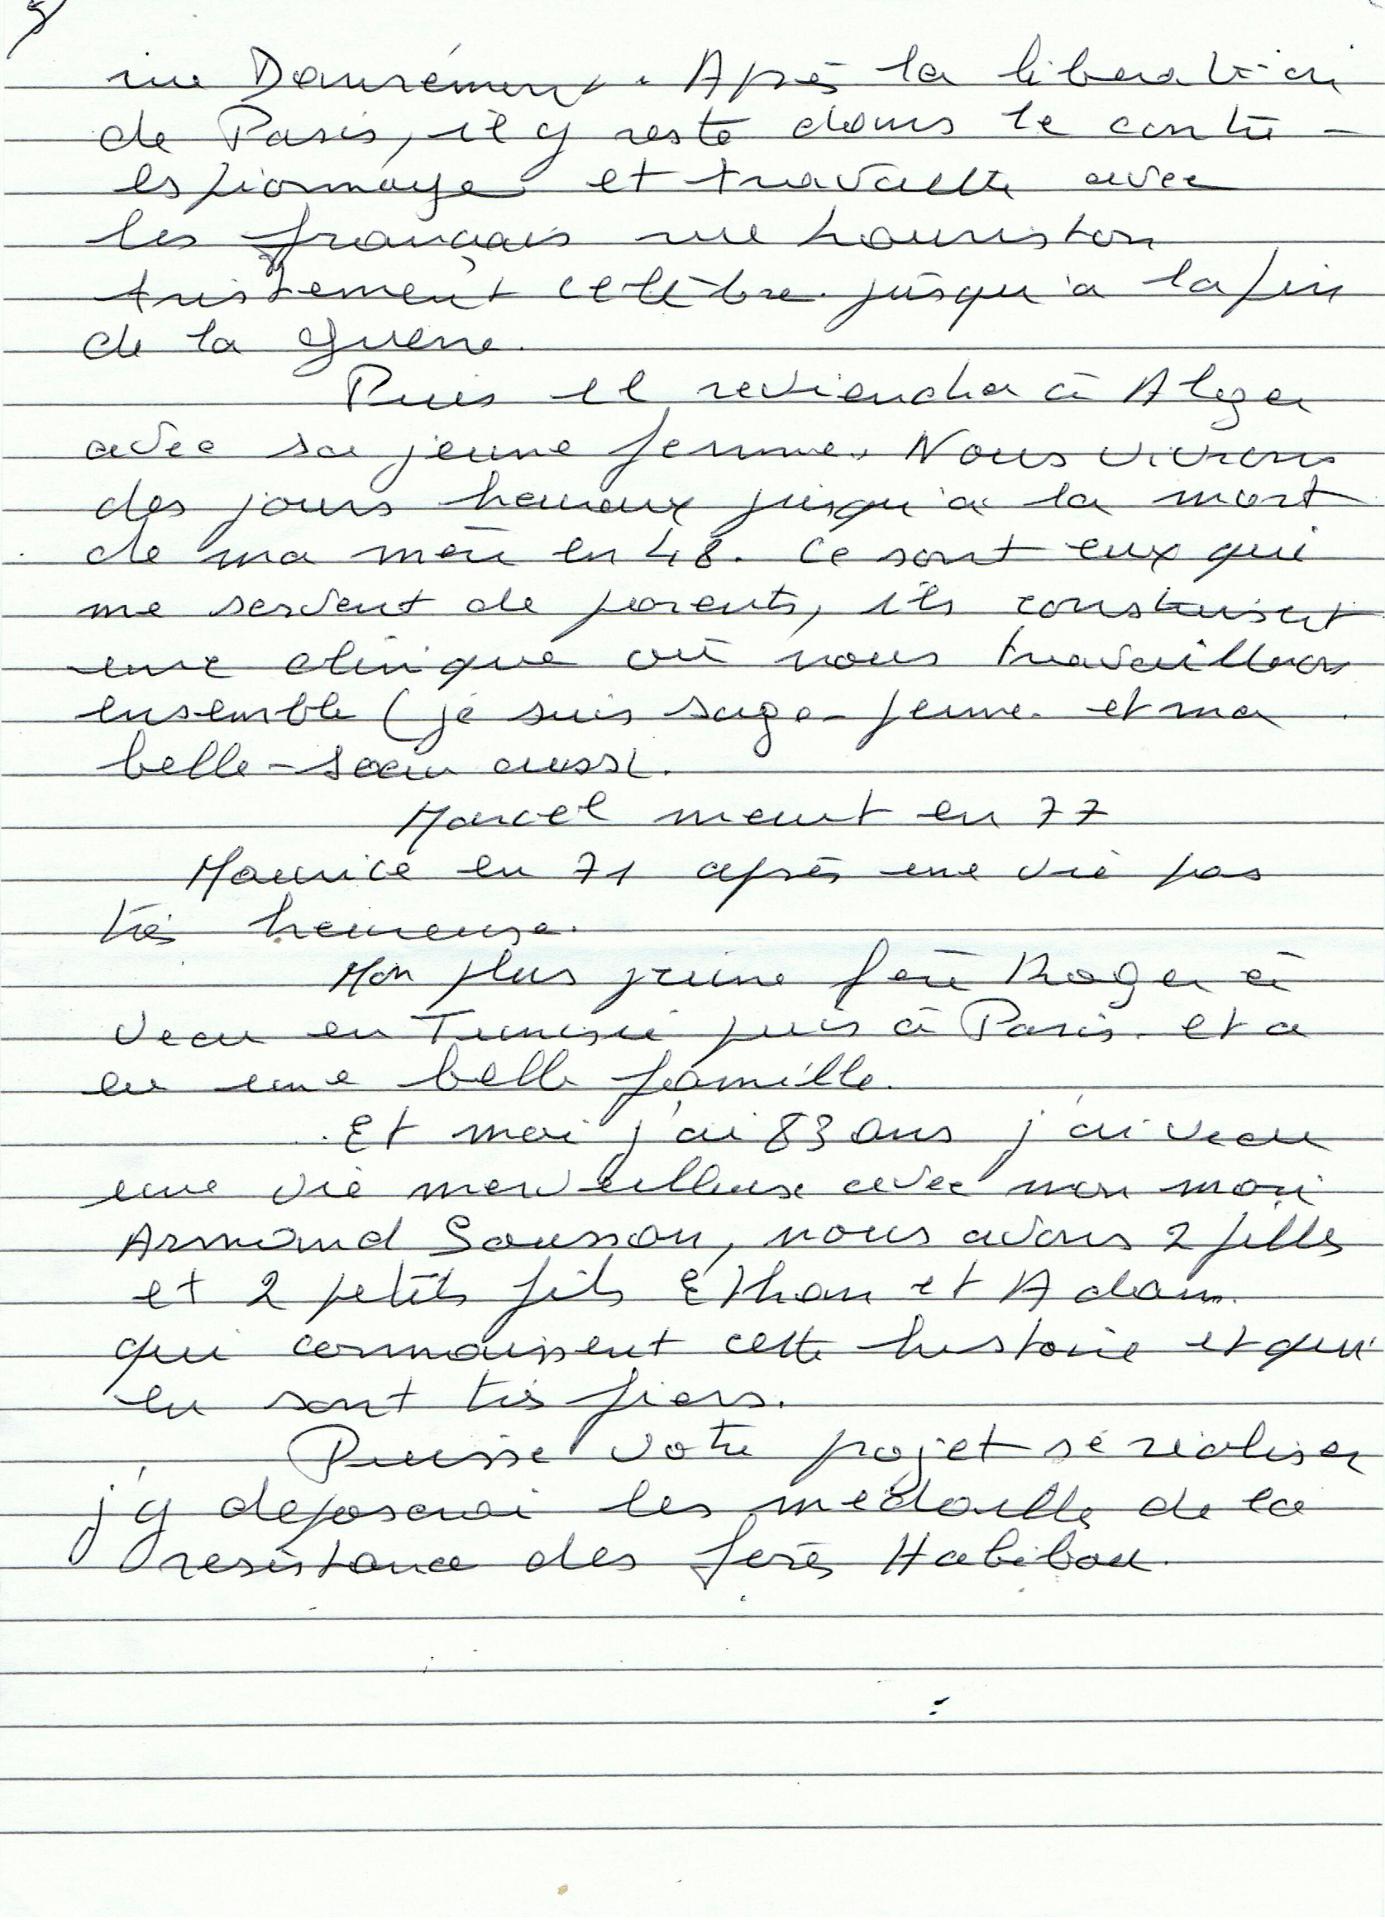 5
rue Damrémont. Après la libération
de Paris, il y reste dans le contre-
espionnage et travaille avec
les français rue Lauriston
tristement célèbre jusqu'à la fin
de la guerre.
Puis il reviendra à Alger
avec sa jeune femme. Nous vivrons
des jours heureux jusqu'à la mort
de ma mère en 48. Ce sont eux qui
me servent de parents, ils construisent
une clinique où nous travaillons
ensemble (je suis sage-femme et ma
belle-sœur aussi.
Marcel meurt en 77
Maurice en 71 après une vie pas
très heureuse.
Mon plus jeune frère Roger à
vécu en Tunisie puis à Paris. et a
eu une belle famille.
Et moi j'ai 83 ans j'ai vécu
une vie merveilleuse avec mon mari
Armand Soussan, nous avons 2 filles
et 2 petits fils Ethan et Adam
qui connaissent cette histoire et qui
en sont très fiers.
Puisse votre projet se réaliser
j'y deposerai les médailles de la
resistance des frères Habibou.